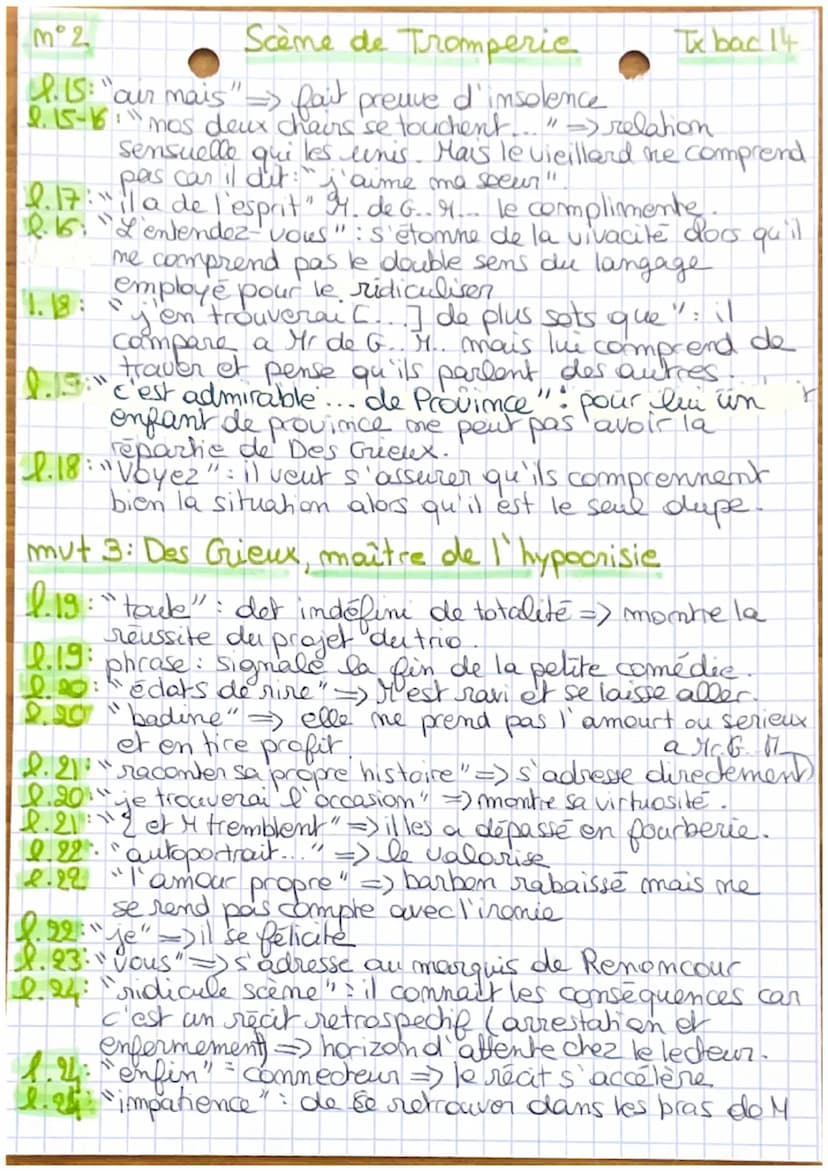 n°2 Scène de Tromperie Tx bac 14
l.15: "air niais" => fait preuve d'insolence
l.15-16: "nos deux chairs se touchent..." => relation
sensuelle qui les unis. Mais le vieillard ne comprend
pas car il dit: "j'aime ma soeur".
l.17: "il a de l'esprit" M. de G.. M... le complimente.
l.16: "L'entendez-vous": s'étonne de la vivacité alors qu'il
ne comprend pas le double sens du langage
employé pour le ridiculiser
l.18: "j'en trouverai [...] de plus sots que": il
compare a Mr de G.. M.. mais lui comprend de
traver et pense qu'ils parlent des autres.
"c'est admirable ... de Province": pour lui un
enfant de province ne peut pas avoir la
répartie de Des Grieux.
l.18: "Voyez": il veut s'assurer qu'ils comprennent
bien la situation alors qu'il est le seul dupe.
mvt 3: Des Grieux, maître de l'hypocrisie
l.19: "toute": det indéfini de totalité => montre la
réussite du projet du trio.
l.19: phrase: signale la fin de la petite comédie.
l.20: "éclats de rire" => M est ravi et se laisse aller.
l.20 "badine" => elle ne prend pas l'amourt ou serieux
et en tire profit. a Mr.G. M
l.21: "raconter sa propre histoire" => s'adresse directement
l.20: "je trouverai l'occasion" => montre sa virtuosité.
l.21: "L et M tremblent" => il les a dépassé en fourberie.
l.22: "autoportrait..." => le valorise
l.22 "l'amour propre" => barbon rabaissé mais ne
se rend pas compte avec l'ironie
l.22: "je" => il se félicite
l.23: "vous" => s'adresse au marquis de Renoncour
l.24: "ridicule scène": il connaît les conséquences car
c'est un récit retrospectif (arrestation et
enfermement) => horizon d'attente chez le lecteur.
l.24: "enfin" = connecteur => le récit s'accélère
"impatience": de se retrouver dans les bras de M